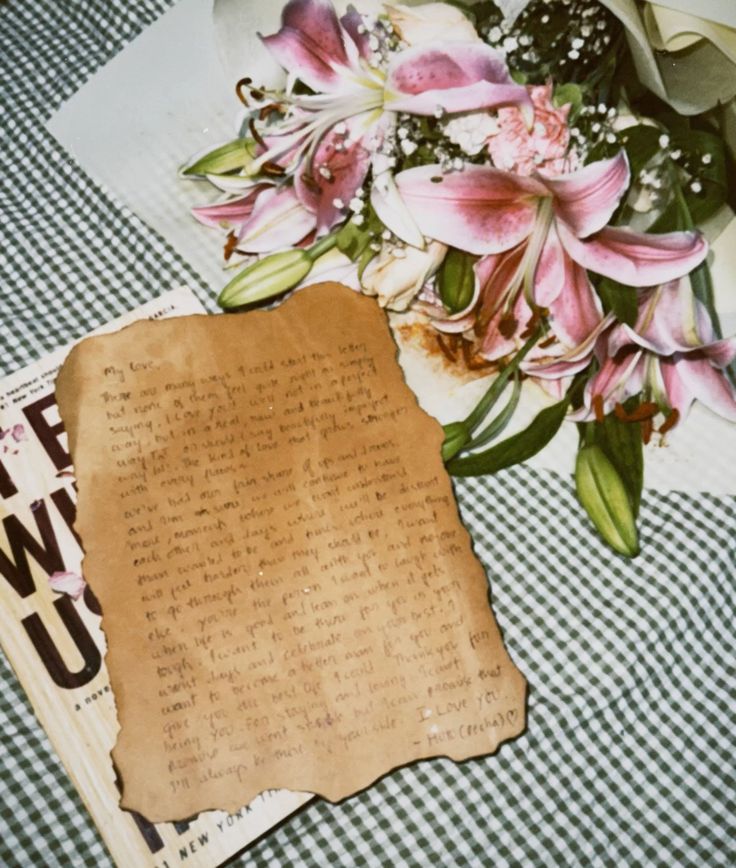 My Love,
There are many ways I could start this letter
but none of them feel quite right as simply
saying, I Love You! Well not in a perfect
way, but in a real, raw and beautifully
way fat or should I say beautifully imperfect
way. The kind of love that grows stronger
with every flaws.
We've had our fair share of ups and downs
and I'm sure we will continue to have
more moments where we won't understand
each other and days where we'll be distant
than wanted to be and times where everything
will feel harder than they should be. I want
to go through them all with you and no one
else. You're the person I want to laugh with
when life is good and lean on when it gets
tough. I want to be there for you in your
worst days and celebrate on your best. I
want to become a better man for you and
give you the best life I could. Thank you for
being you. For staying and loving. I can't
promise we won't but I can promise that
I'll always be there, by your side. I LOVE YOU
- HUB
a novel
NEW YORK
GARCIA.
US